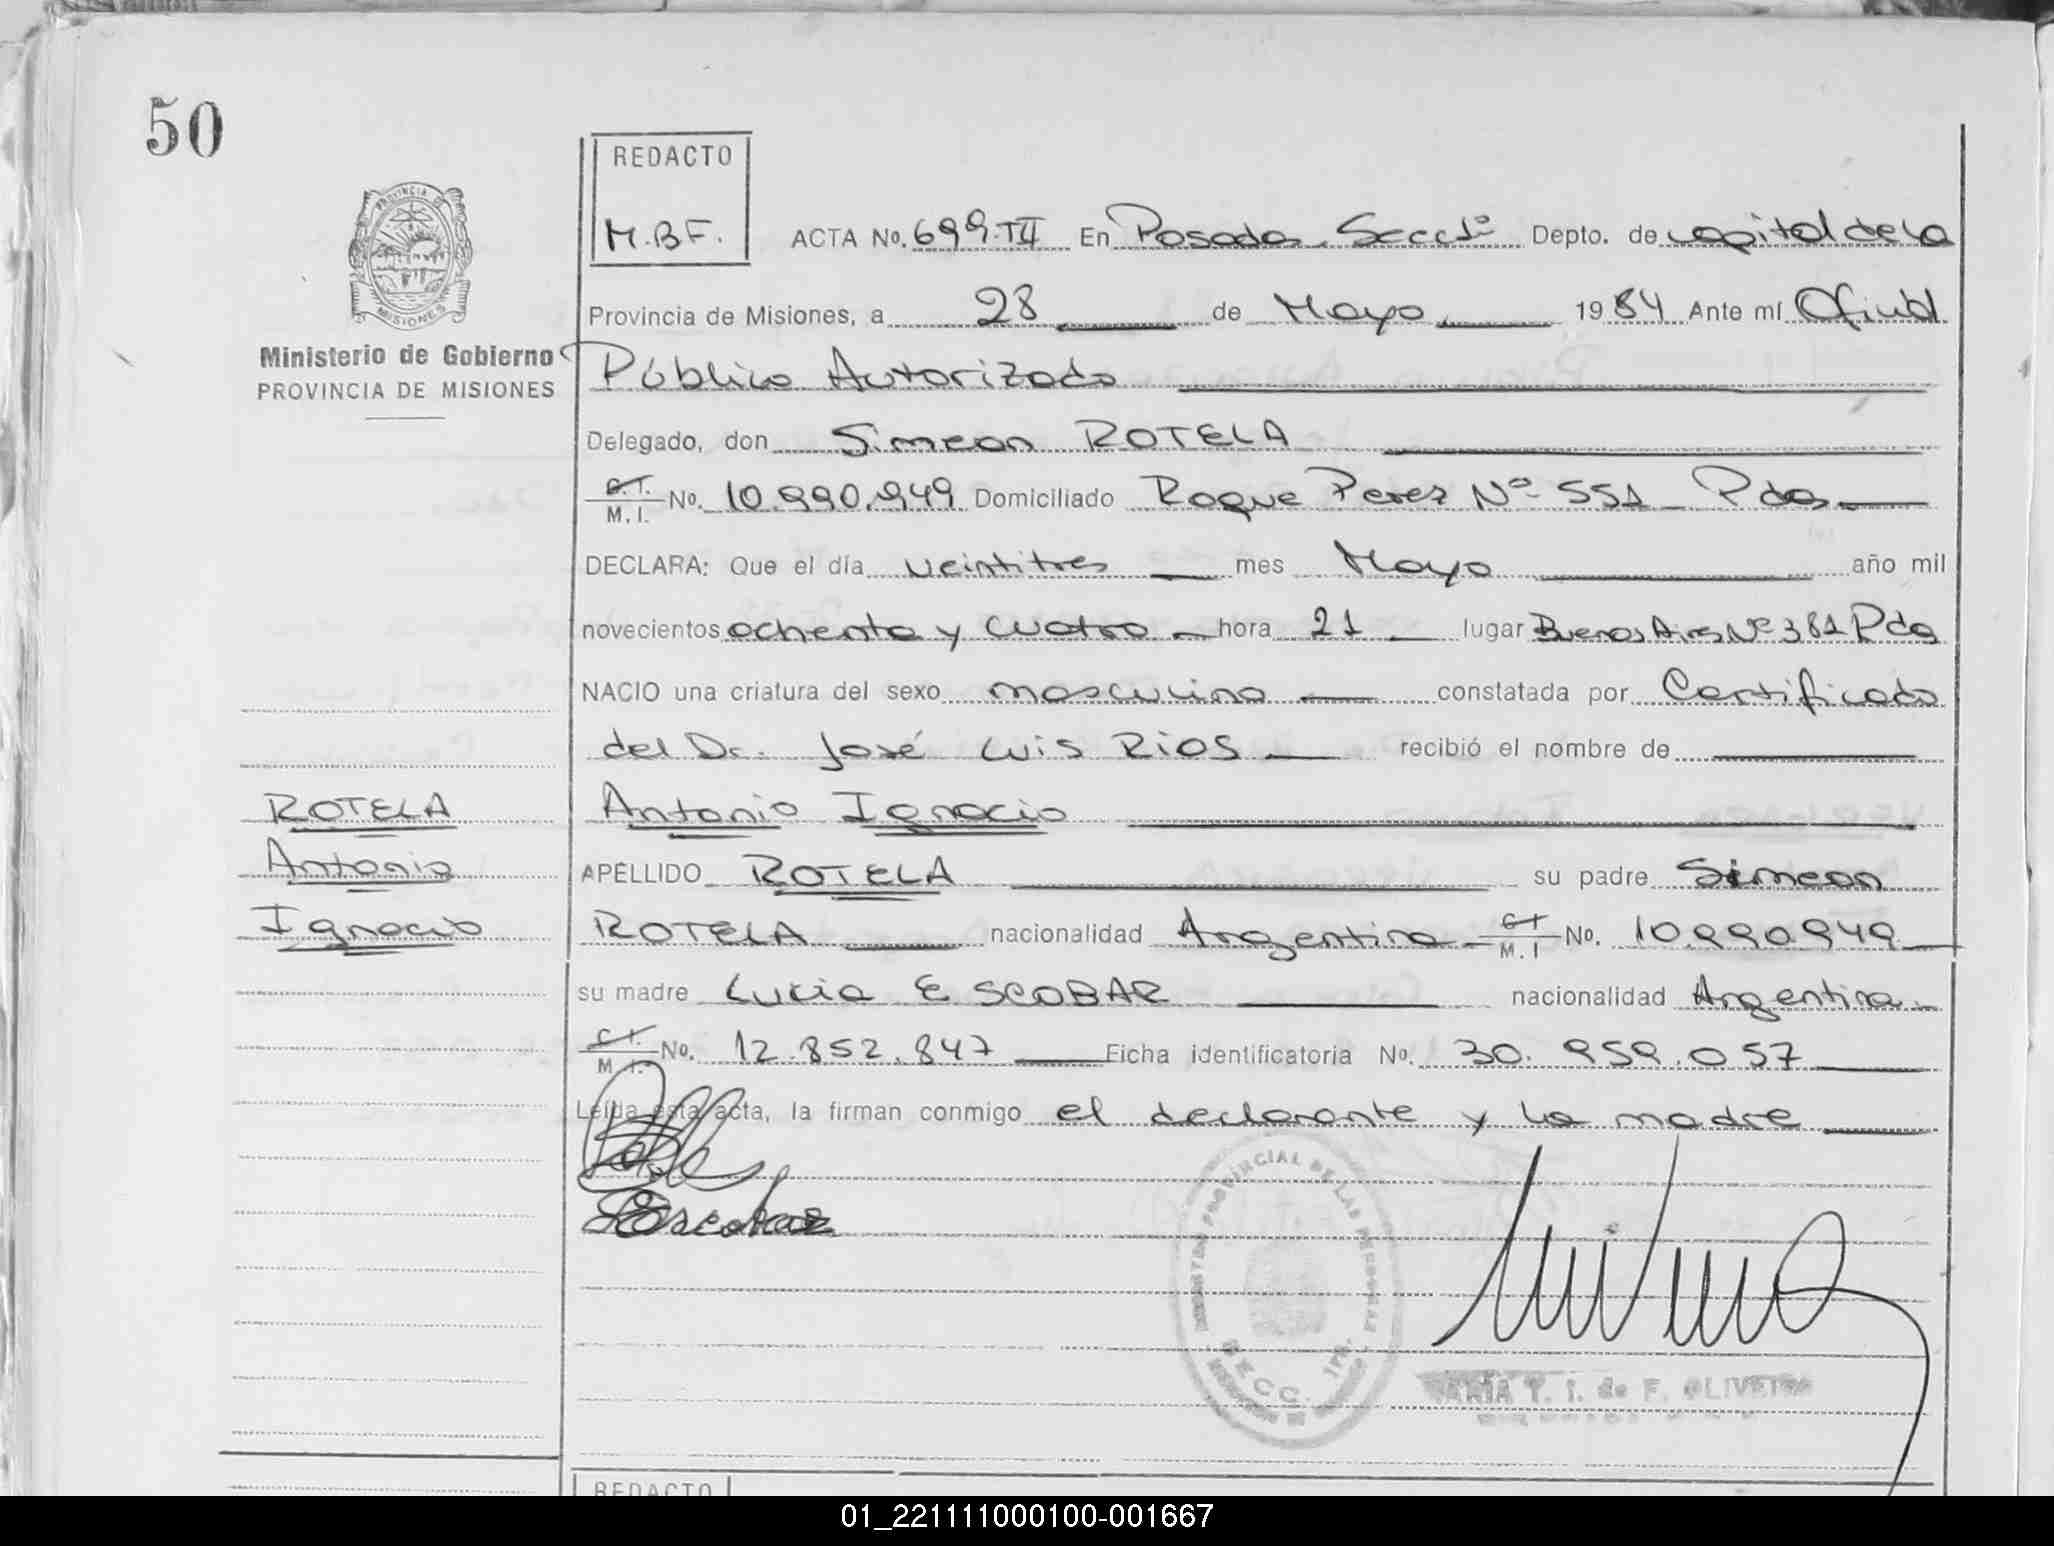 50
REDACTO
M.B.F.
ACTA No. 699.TII En Posadas Secc 1º Depto. de capital de la
Provincia de Misiones, a 28 de Mayo 1984 Ante mí Oficial
Ministerio de Gobierno
PROVINCIA DE MISIONES
Público Autorizado
Delegado, don Simeon ROTELA
C.I. M.I. No. 10.990.949 Domiciliado Roque Perez Nº 551 - Pdas
DECLARA: Que el día veintitres mes Mayo año mil
novecientos ochenta y cuatro hora 21 lugar Buenos Aires Nº 381 Pdas
NACIO una criatura del sexo masculino constatada por Certificado
del Dr. José Luis RIOS recibió el nombre de
ROTELA
Antonio Ignacio
Antonio
APELLIDO ROTELA su padre Simeon
Ignacio
ROTELA nacionalidad Argentina C.I M.I No. 10.990.949
su madre Lucia ESCOBAR nacionalidad Argentina
C.I. M.I. No. 12.852.847 Ficha identificatoria No. 30.959.057
Leída esta acta, la firman conmigo el declarante y la madre
Escobar
PROVINCIAL DE LAS PERSONAS
SECC. 1RA.
MARIA T. I. de F. OLIVEIRA
REDACTO
01_221111000100-001667